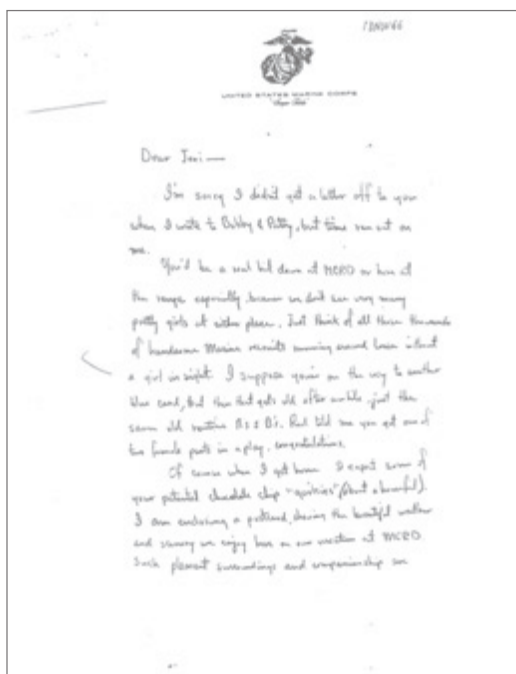 UNITED STATES MARINE CORPS
"Semper Fidelis"
Dear
I'm sorry I didn't get a letter off to you
when I wrote to Bobby & Patty, but time ran out on
me.
You'd be a real hit down at MCRD or here at
the range especially, because we don't see very many
pretty girls at either place. Just think of all these thousands
of handsome Marine recruits running around here without
a girl in sight. I suppose you're on the way to another
blue card, but then that gets old after awhile, just the
same old routine A's & B's. told me you got one of
two female parts in a play, congratulations.
Of course when I get home I expect some of
your chocolate chip
I am enclosing a postcard, showing the beautiful weather
and scenery we enjoy here on our vacation at MCRD
Such pleasant surroundings and companionship